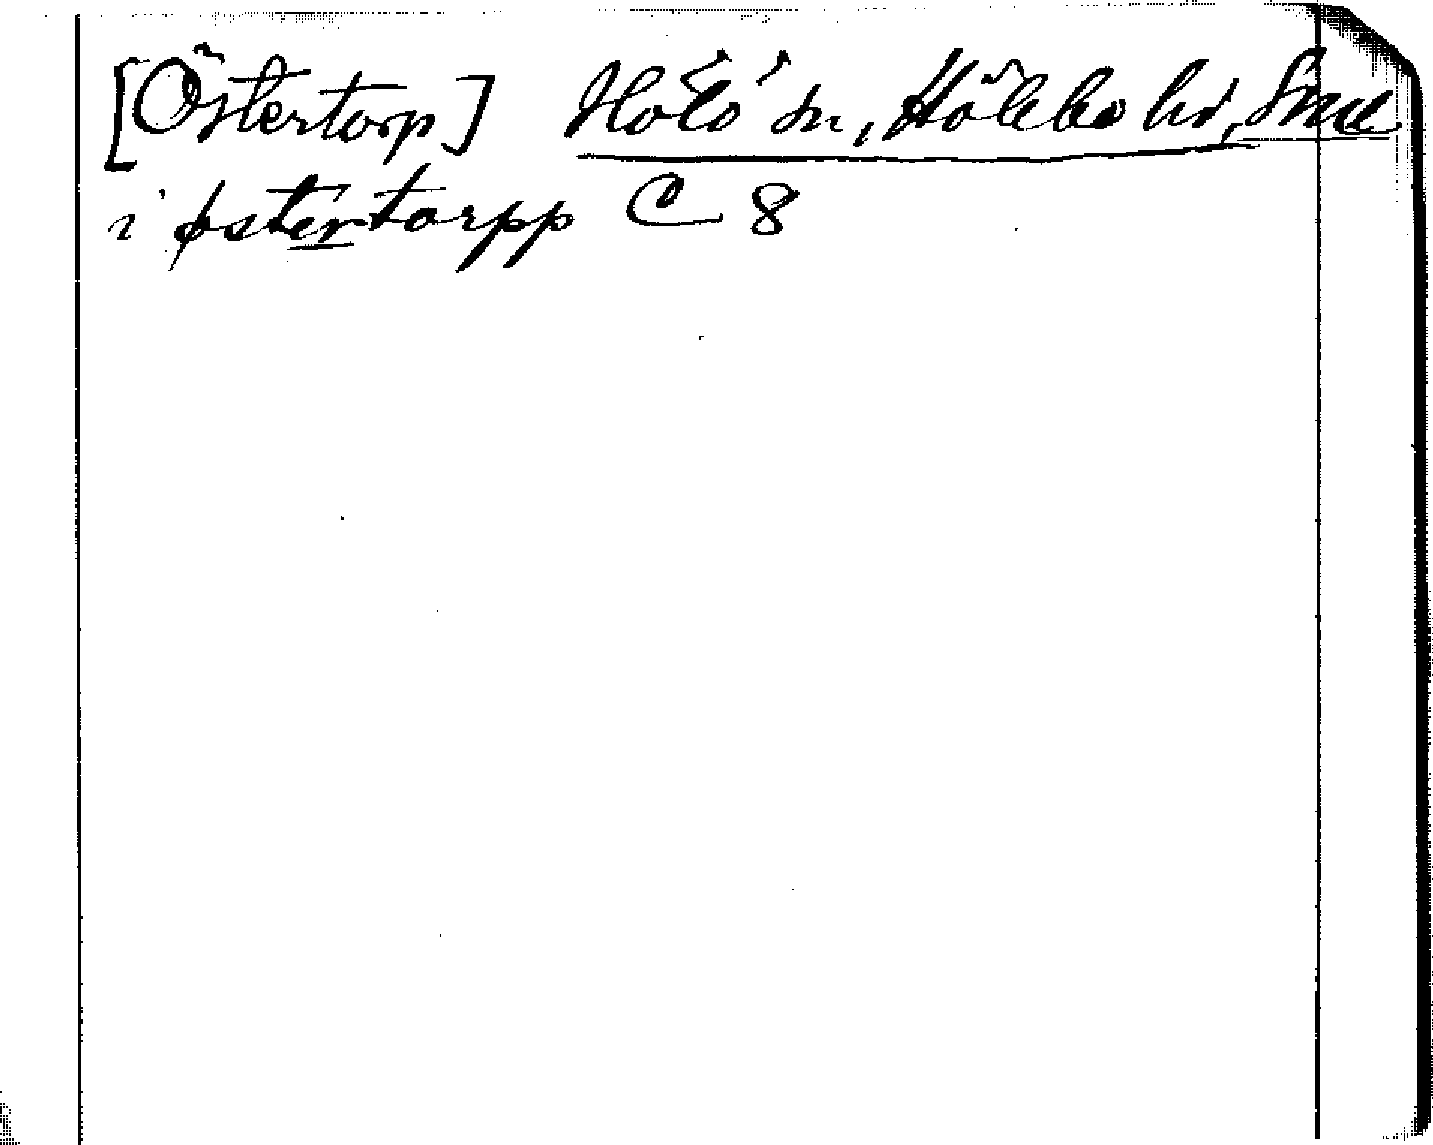 [Östertorp] Hölö sn, Hölebo hd, Sml
i østertorpp C 8